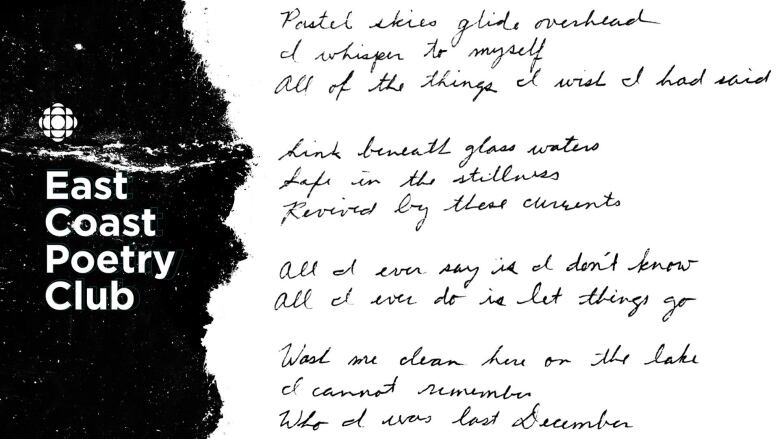 East
Coast
Poetry
Club
Pastel skies glide overhead
I whisper to myself
All of the things I wish I had said
Sink beneath glass waters
Safe in the stillness
Revived by these currents
All I ever say is I don't know
All I ever do is let things go
Wash me clean here on the lake
I cannot remember
Who I was last December